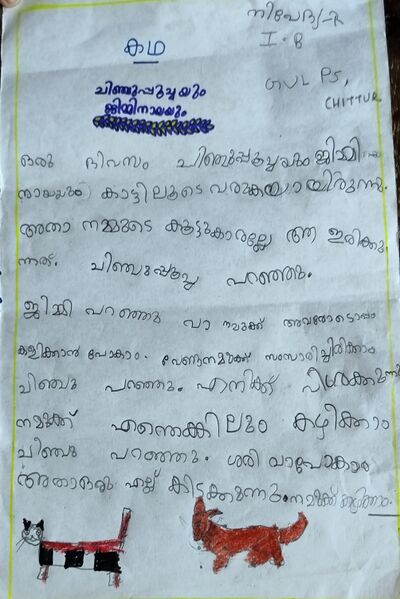 നിവേദ്യ-R
I-B
കഥ
GVLPS,
CHITTUR
ചിഞ്ചുപ്പൂച്ചയും
ജിമ്മിനായയും
ഒരു ദിവസം ചിഞ്ചുപ്പൂച്ചയും ജിമ്മി
നായയും കാട്ടിലൂടെ വരുകയായിരുന്നു.
അതാ നമ്മുടെ കൂട്ടുകാരല്ലേ ആ ഇരിക്കു
ന്നത്. ചിഞ്ചുപ്പൂച്ച പറഞ്ഞു.
ജിമ്മി പറഞ്ഞു വാ നമുക്ക് അവരോടൊപ്പം
കളിക്കാൻ പോകാം. വേണ്ടനമുക്ക് സംസാരിച്ചിരിക്കാം
ചിഞ്ചു പറഞ്ഞു. എനിക്ക് വിശക്കുന്നു
നമുക്ക് എന്തെങ്കിലും കഴിക്കാം
ചിഞ്ചു പറഞ്ഞു. ശരി വാപോകാം
അതാഒരു എല്ല് കിടക്കുന്നു. നമുക്ക്